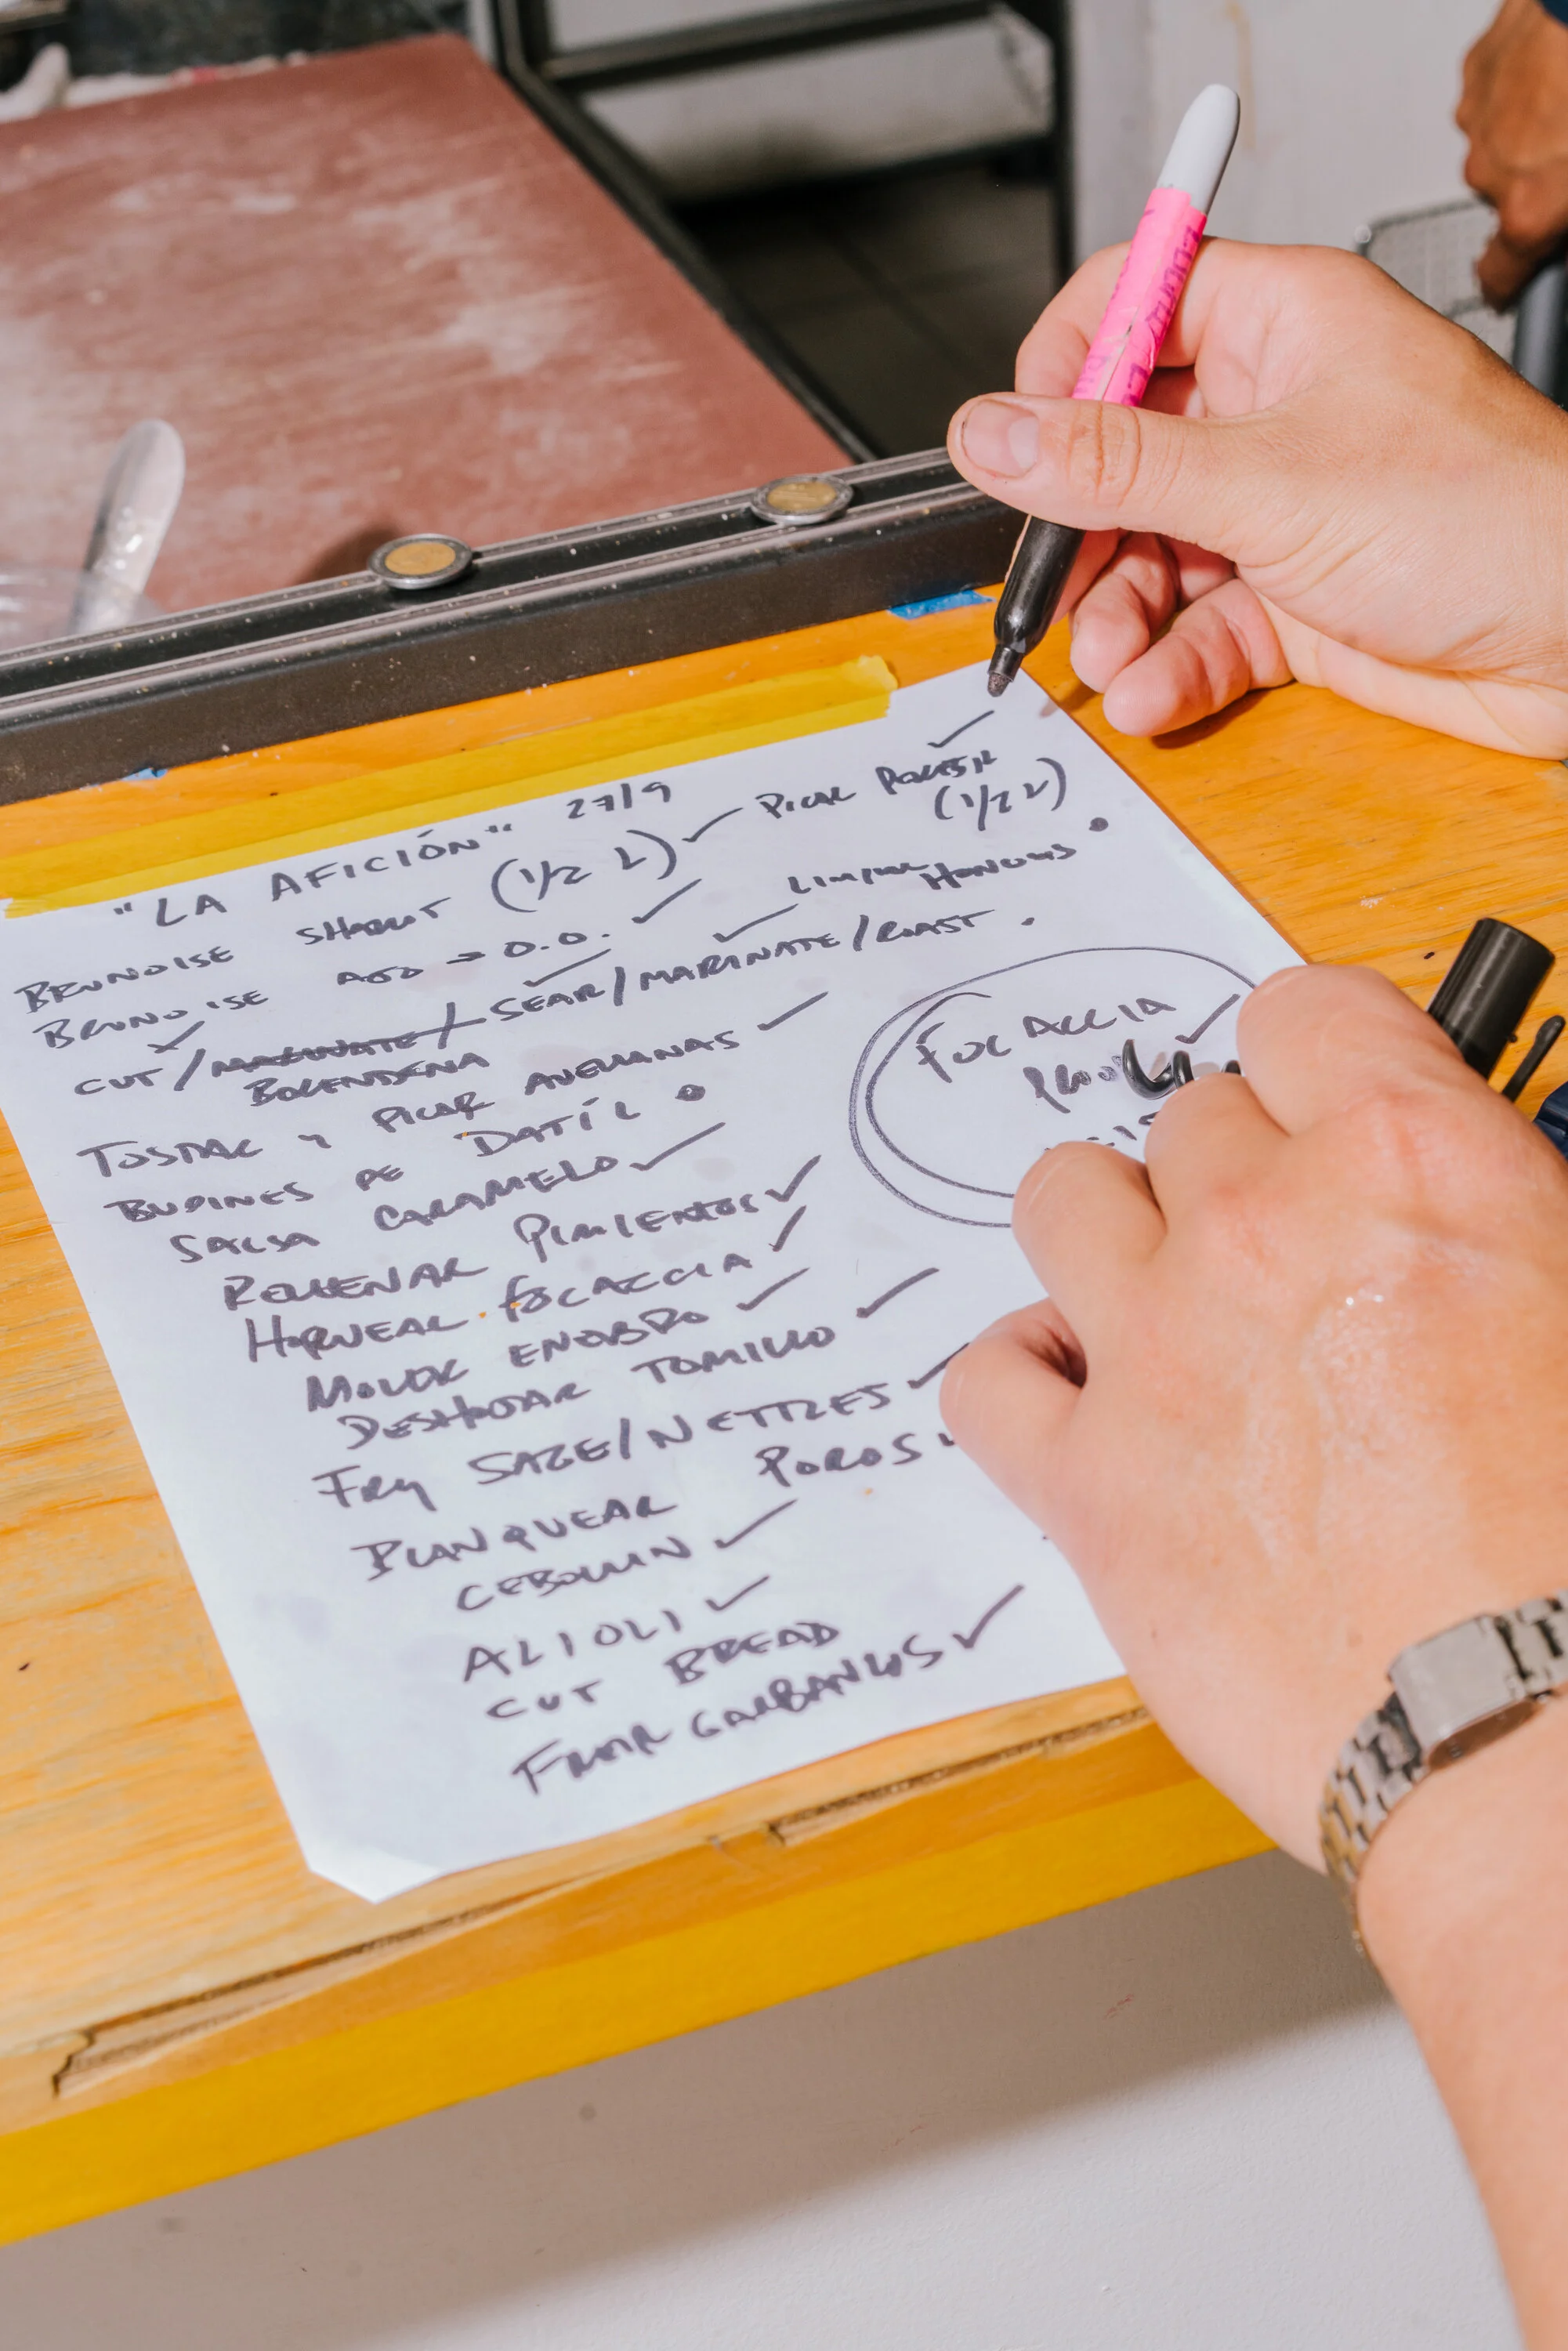 "LA AFICIÓN" 27/9
BRUNOISE SHALLOT (1/2 L) ✓ PICAR PEREJIL ✓ (1/2 L)
BRUNOISE AJO → O.O. ✓ LIMPIAR HONGOS •
CUT ✓ / MARINATE / SEAR ✓ / MARINATE ✓ / ROAST •
BERENJENA
TOSTAR Y PICAR AVELLANAS ✓
BUDINES DE DATÍL •
SALSA CARAMELO ✓
RELLENAR PIMIENTOS ✓
HORNEAR FOCACCIA ✓
MOLER ENELDO ✓
DESHOJAR TOMILLO ✓
FRY SAGE/NETTLES ✓
BLANQUEAR POROS
CEBOLLIN ✓
ALIOLI ✓
CUT BREAD
FREIR GARBANZOS ✓
FOCACCIA ✓